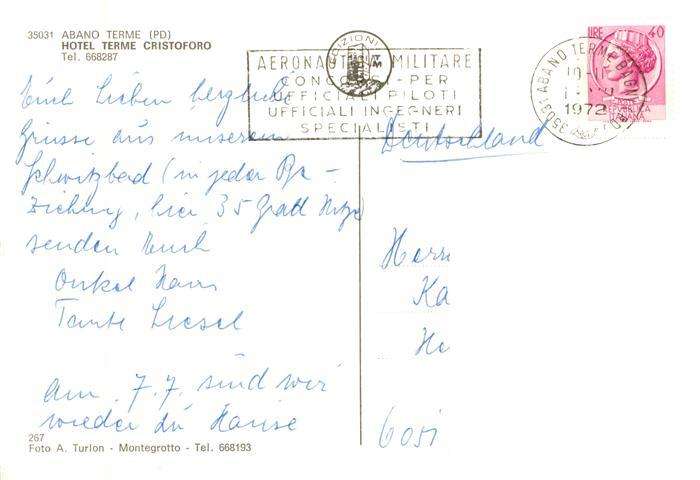 35031 ABANO TERME (PD)
HOTEL TERME CRISTOFORO
Tel. 668287
AERONAUTICA MILITARE
CONCORSI - PER
UFFICIALI PILOTI
UFFICIALI INGEGNERI
SPECIALISTI
LIRE 40
35031 ABANO TERME BAGNI (PD)
1972
Euch Lieben herzliche
Grüsse aus unserem
Schwitzbad (in jeder Be-
ziehung, hier 35 Grad Hitze)
senden Euch
Onkel Hans
Tante Liesel
Am 7.7. sind wir
wieder zu Hause
Deutschland
Herrn
Ka
He
605
267
Foto A. Turlon - Montegrotto - Tel. 668193